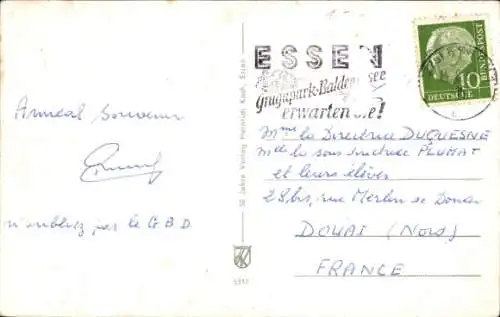 Amical Souvenir
n'oubliez pas le G.B.D.
30 Jahre Verlag Heinrich Koch, Essen
5317
ESSEN
Grugapark-Baldeneysee
erwarten Sie!
DEUTSCHE
BUNDESPOST
10
Mme la Directrice DUQUESNE
Mlle la sous directrice PLUMAT
et leurs élèves
28, bis, rue Merlin de Douai
DOUAI (Nord)
FRANCE